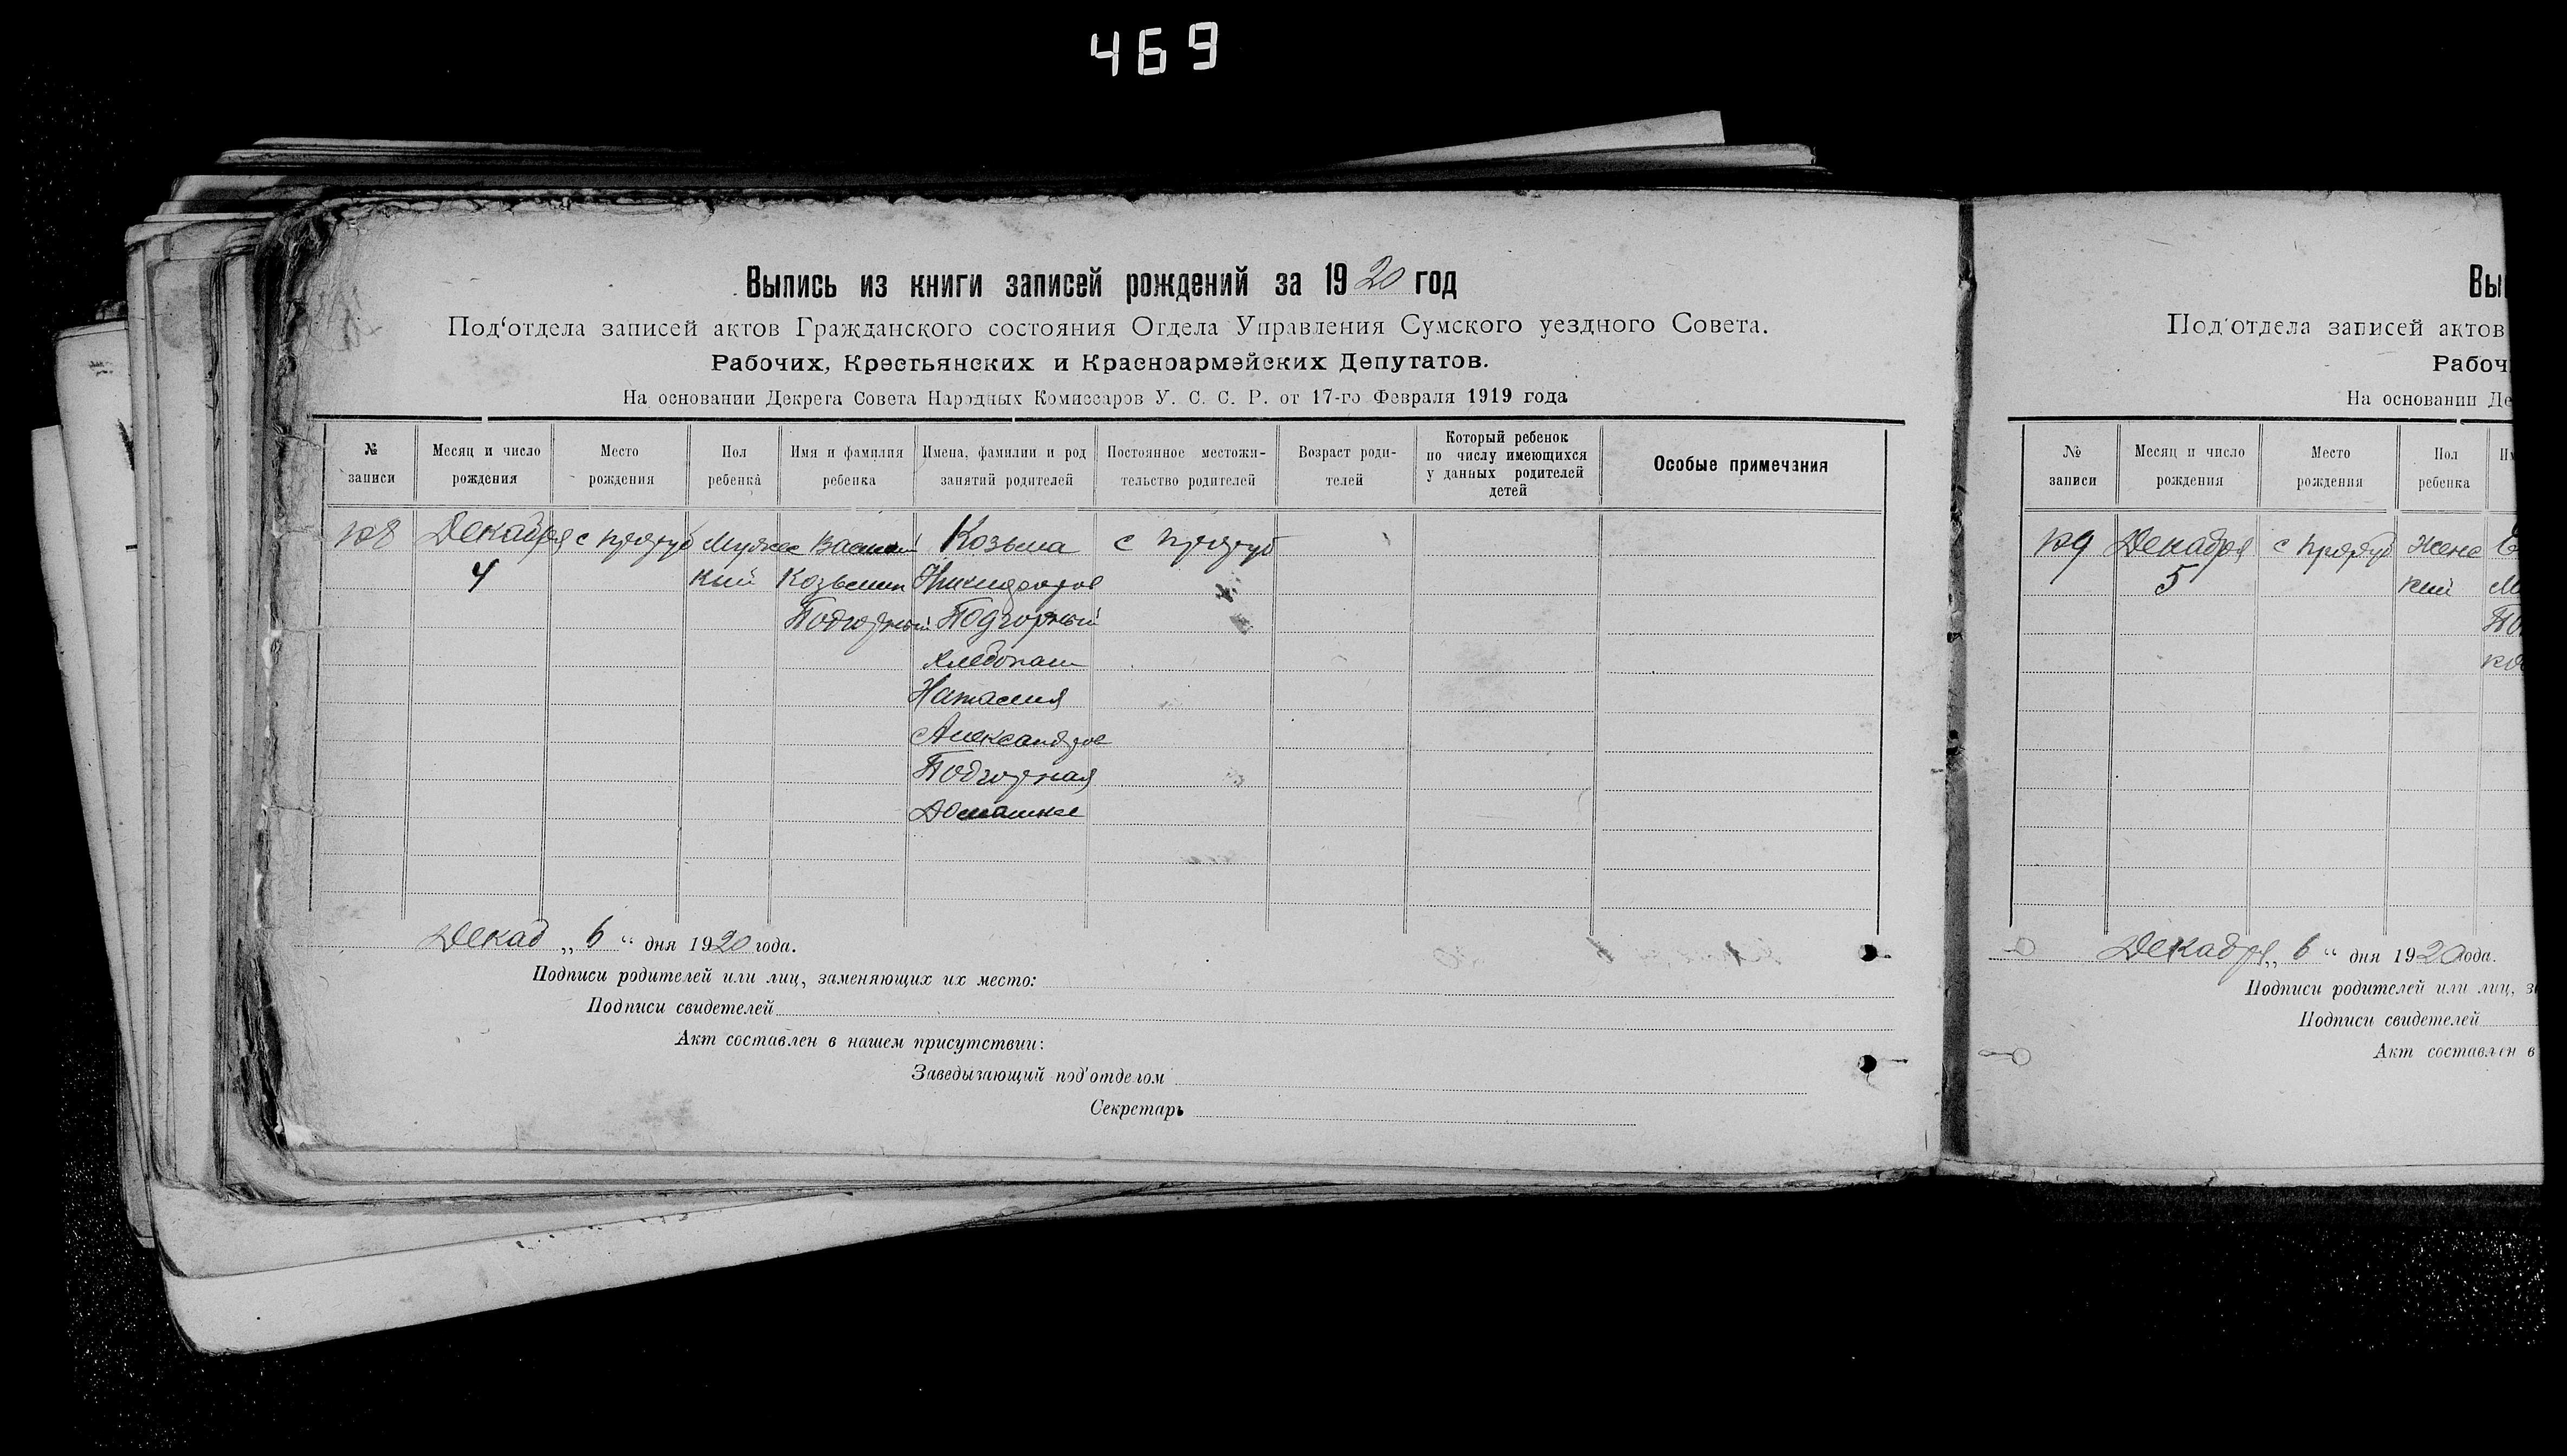 469
Выпись из книги записей рождений за 1920 год
Под‘отдела записей актов Гражданского состояния Отдела Управления Сумского уездного Совета.
Рабочих, Крестьянских и Красноармейских Депутатов.
На основании Декрета Совета Народных Комиссаров У. С. С. Р. от 17-го Февраля 1919 года
№ записи
Месяц и число рождения
Место рождения
Пол ребенка
Имя и фамилия ребенка
Имена, фамилии и род занятий родителей
Постоянное местожи-тельство родителей
Возраст роди-телей
Который ребенок по числу имеющихся у данных родителей детей
Особые примечания
128 Декабря с Мужес Василий Козьма с
4 кий Козьмин Никифоров
Подгорный Подгорный
хлебопаш
Натасия
Александров
Подгорная
Домашнее
Декаб „ 6 “ дня 1920 года.
Подписи родителей или лиц, заменяющих их место:
Подписи свидетелей
Акт составлен в нашем присутствии:
Заведывающий под‘отделом
Секретарь
Вы
Под‘отдела записей актов
Рабоч
На основании Де
№ записи
Месяц и число рождения
Место рождения
Пол ребенка
129 Декабря с Женс
5 кий
Декабря „ 6 “ дня 1920 года.
Подписи родителей или лиц, з
Подписи свидетелей
Акт составлен в